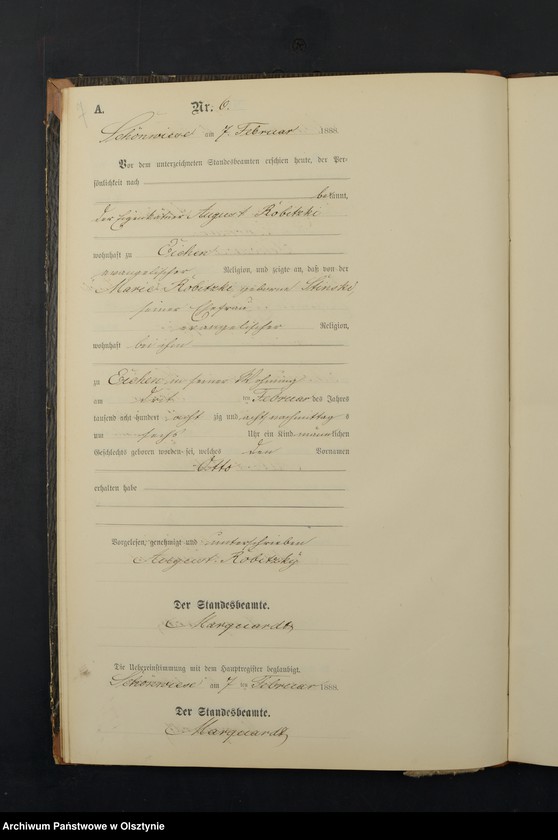 A.
Nr. 6.
Schönwiese am 7. Februar 1888.
Vor dem unterzeichneten Standesbeamten erschien heute, der Per-
sönlichkeit nach
bekannt,
der Eigenkätner August Robetzki
wohnhaft zu Eichen
evangelischer Religion, und zeigte an, daß von der
Marie Robetzki geborene Stinski
seiner Ehefrau
evangelischer Religion,
wohnhaft bei ihm
zu Eichen in seiner Wohnung
am drit ten Februar des Jahres
tausend acht hundert acht zig und acht nachmittag s
um sechs Uhr ein Kind männlichen
Geschlechts geboren worden sei, welches den Vornamen
Otto
erhalten habe
Vorgelesen, genehmigt und unterschrieben
August Robetzky
Der Standesbeamte.
Marquardt
Die Uebereinstimmung mit dem Hauptregister beglaubigt.
Schönwiese am 7 ten Februar 1888.
Der Standesbeamte.
Marquardt
Archiwum Państwowe w Olsztynie